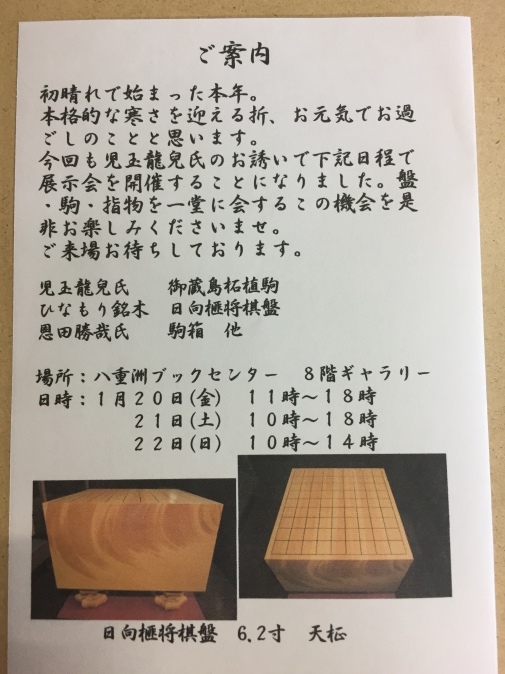 ご案内
初晴れで始まった本年。
本格的な寒さを迎える折、お元気でお過
ごしのことと思います。
今回も児玉龍兒氏のお誘いで下記日程で
展示会を開催することになりました。盤
・駒・指物を一堂に会するこの機会を是
非お楽しみくださいませ。
ご来場お待ちしております。
児玉龍兒氏　　御蔵島柘植駒
ひなもり銘木　日向榧将棋盤
恩田勝哉氏　　駒箱　他
場所：八重洲ブックセンター　８階ギャラリー
日時：１月２０日(金)　１１時～１８時
２１日(土)　１０時～１８時
２２日(日)　１０時～１４時
日向榧将棋盤　6.2寸　天柾